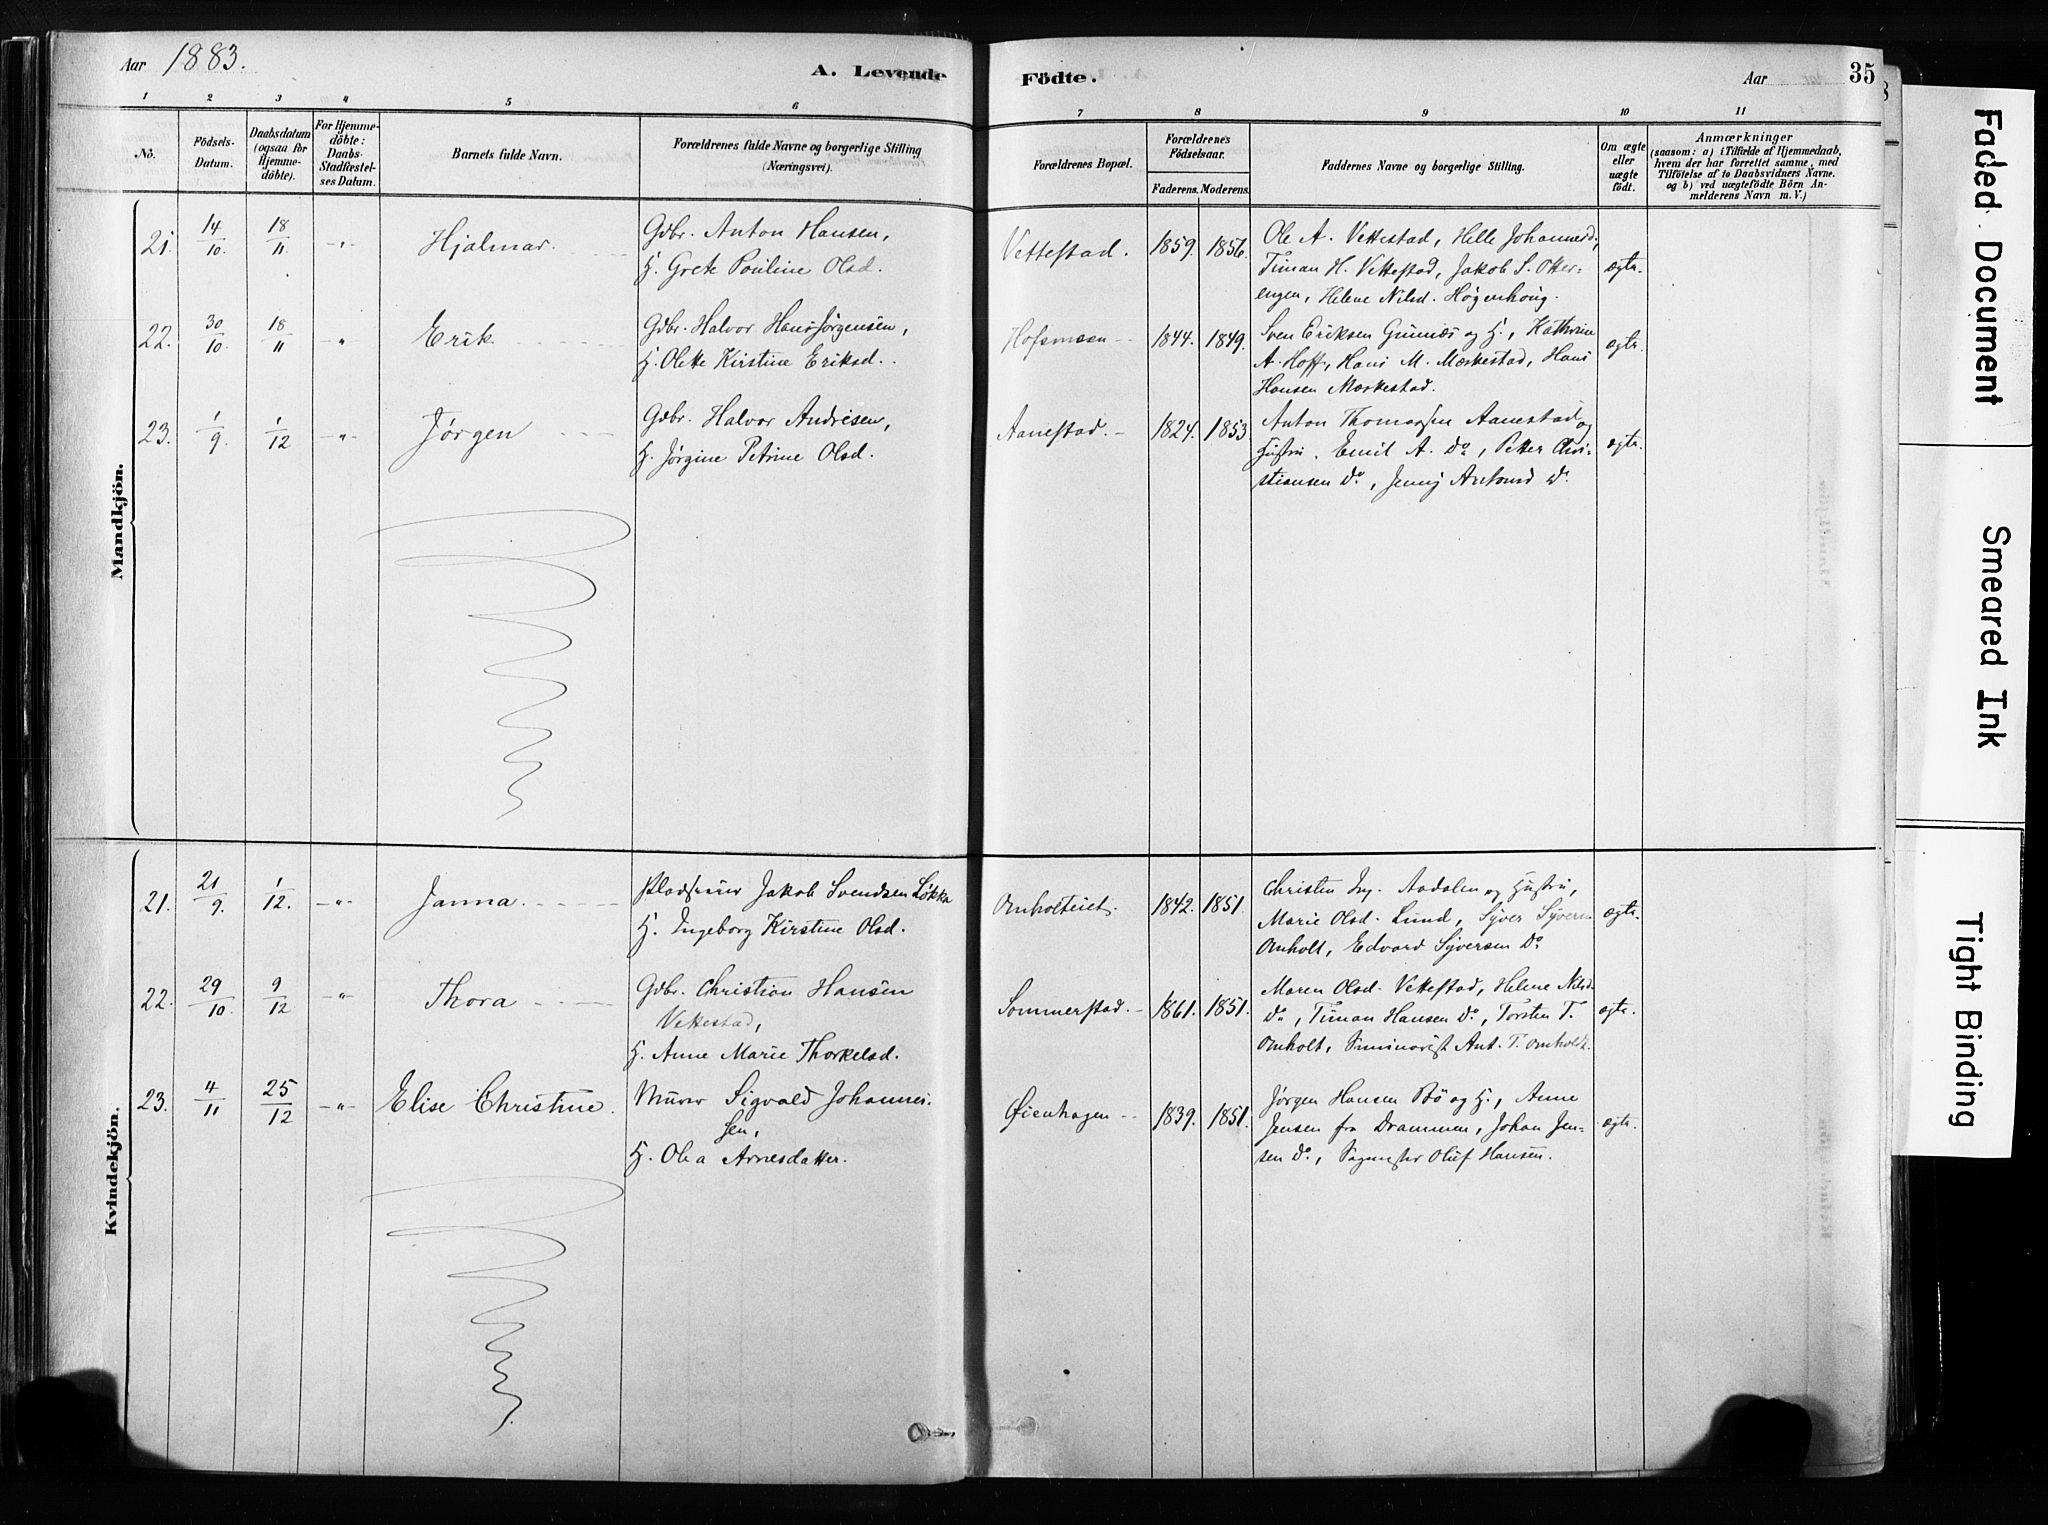 Aar 1883.
A. Levende Födte.
Aar 35
1 2 3 4 5 6 7 8 9 10 11
No.
Födsels-Datum.
Daabsdatum (ogsaa for Hjemme-döbte).
For Hjemme-döbte: Daabs-Stadfæstel-ses Datum.
Barnets fulde Navn.
Forældrenes fulde Navne og borgerlige Stilling (Næringsvei).
Forældrenes Bopæl.
Forældrenes Födselsaar.
Faderens. Moderens.
Faddernes Navne og borgerlige Stilling.
Om ægte eller uægte födt.
Anmærkninger
(saasom: a) i Tilfælde af Hjemmedaab,
hvem der har forrettet samme, med
Tilföielse af to Daabsvidners Navne.
og b) ved uægtefödte Börn An-
melderens Navn m. V.)
Mandkjön.
21. 14/10. 18/11. -"- Hjalmar. Gdbr. Anton Hansen, Vettestad. 1859. 1856. Ole A. Vettestad, Helle Johannesd.,
H. Grete Pouline Olsd. Timan H. Vettestad, Jakob S. Otter- ægte.
engen, Helene Nilsd. Högenhoug.
22. 30/10. 18/11 -"- Erik Gdbr. Halvor Hans Jørgensen, Hofsmoen 1844. 1849. Sven Eriksen Grimnæs og H., Kathrine ægte.
H. Olette Kirstine Eriksd. A. Hoff, Hans M. Mærkestad, Hans
Hansen Mærkestad.
23. 1/9. 1/12 -"- Jørgen Gdbr. Halvor Andresen, Aanestad. 1824. 1853. Anton Thomassen Aanestad og ægte.
H. Jørgine Petrine Olsd. Hustru. Emil A. Do, Petter Chri-
stiansen Do, Jenny Antonsd Do.
Kvindekjön.
21. 21/9. 1/12. -"- Janna. Pladsmand Jakob Svendsen Løkka Omholteiet. 1842. 1851. Christen Ing. Aadalen og Hustru,
H. Ingeborg Kirstine Olsd. Marie Olsd. Lund, Syver Syvers. ægte.
Omholt, Edvard Syversen Do
22. 29/10. 9/12 -"- Thora Gdbr. Christian Hansen Sommerstad. 1861. 1851. Maren Olsd. Vettestad, Helene Nilsd.
Vettestad, Do, Timan Hansen Do, Torsten T. ægte.
H. Anne Marie Thorkelsd. Omholt, Seminarist Ant. T. Omholt.
23. 4/11 25/12 -"- Elise Christine. Murer Sigvald Johannes- Øienhagen 1839. 1851. Jørgen Hansen Bö og H., Anne
sen, Jensen fra Drammen, Johan Jen- ægte.
H. Olea Arnesdatter. sen Do, Sagmester Oluf Hansen.
Faded Document
Smeared Ink
Tight Binding